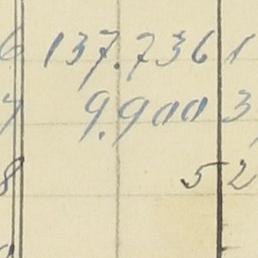 6 137.736 1
7 9.900 3
8 52